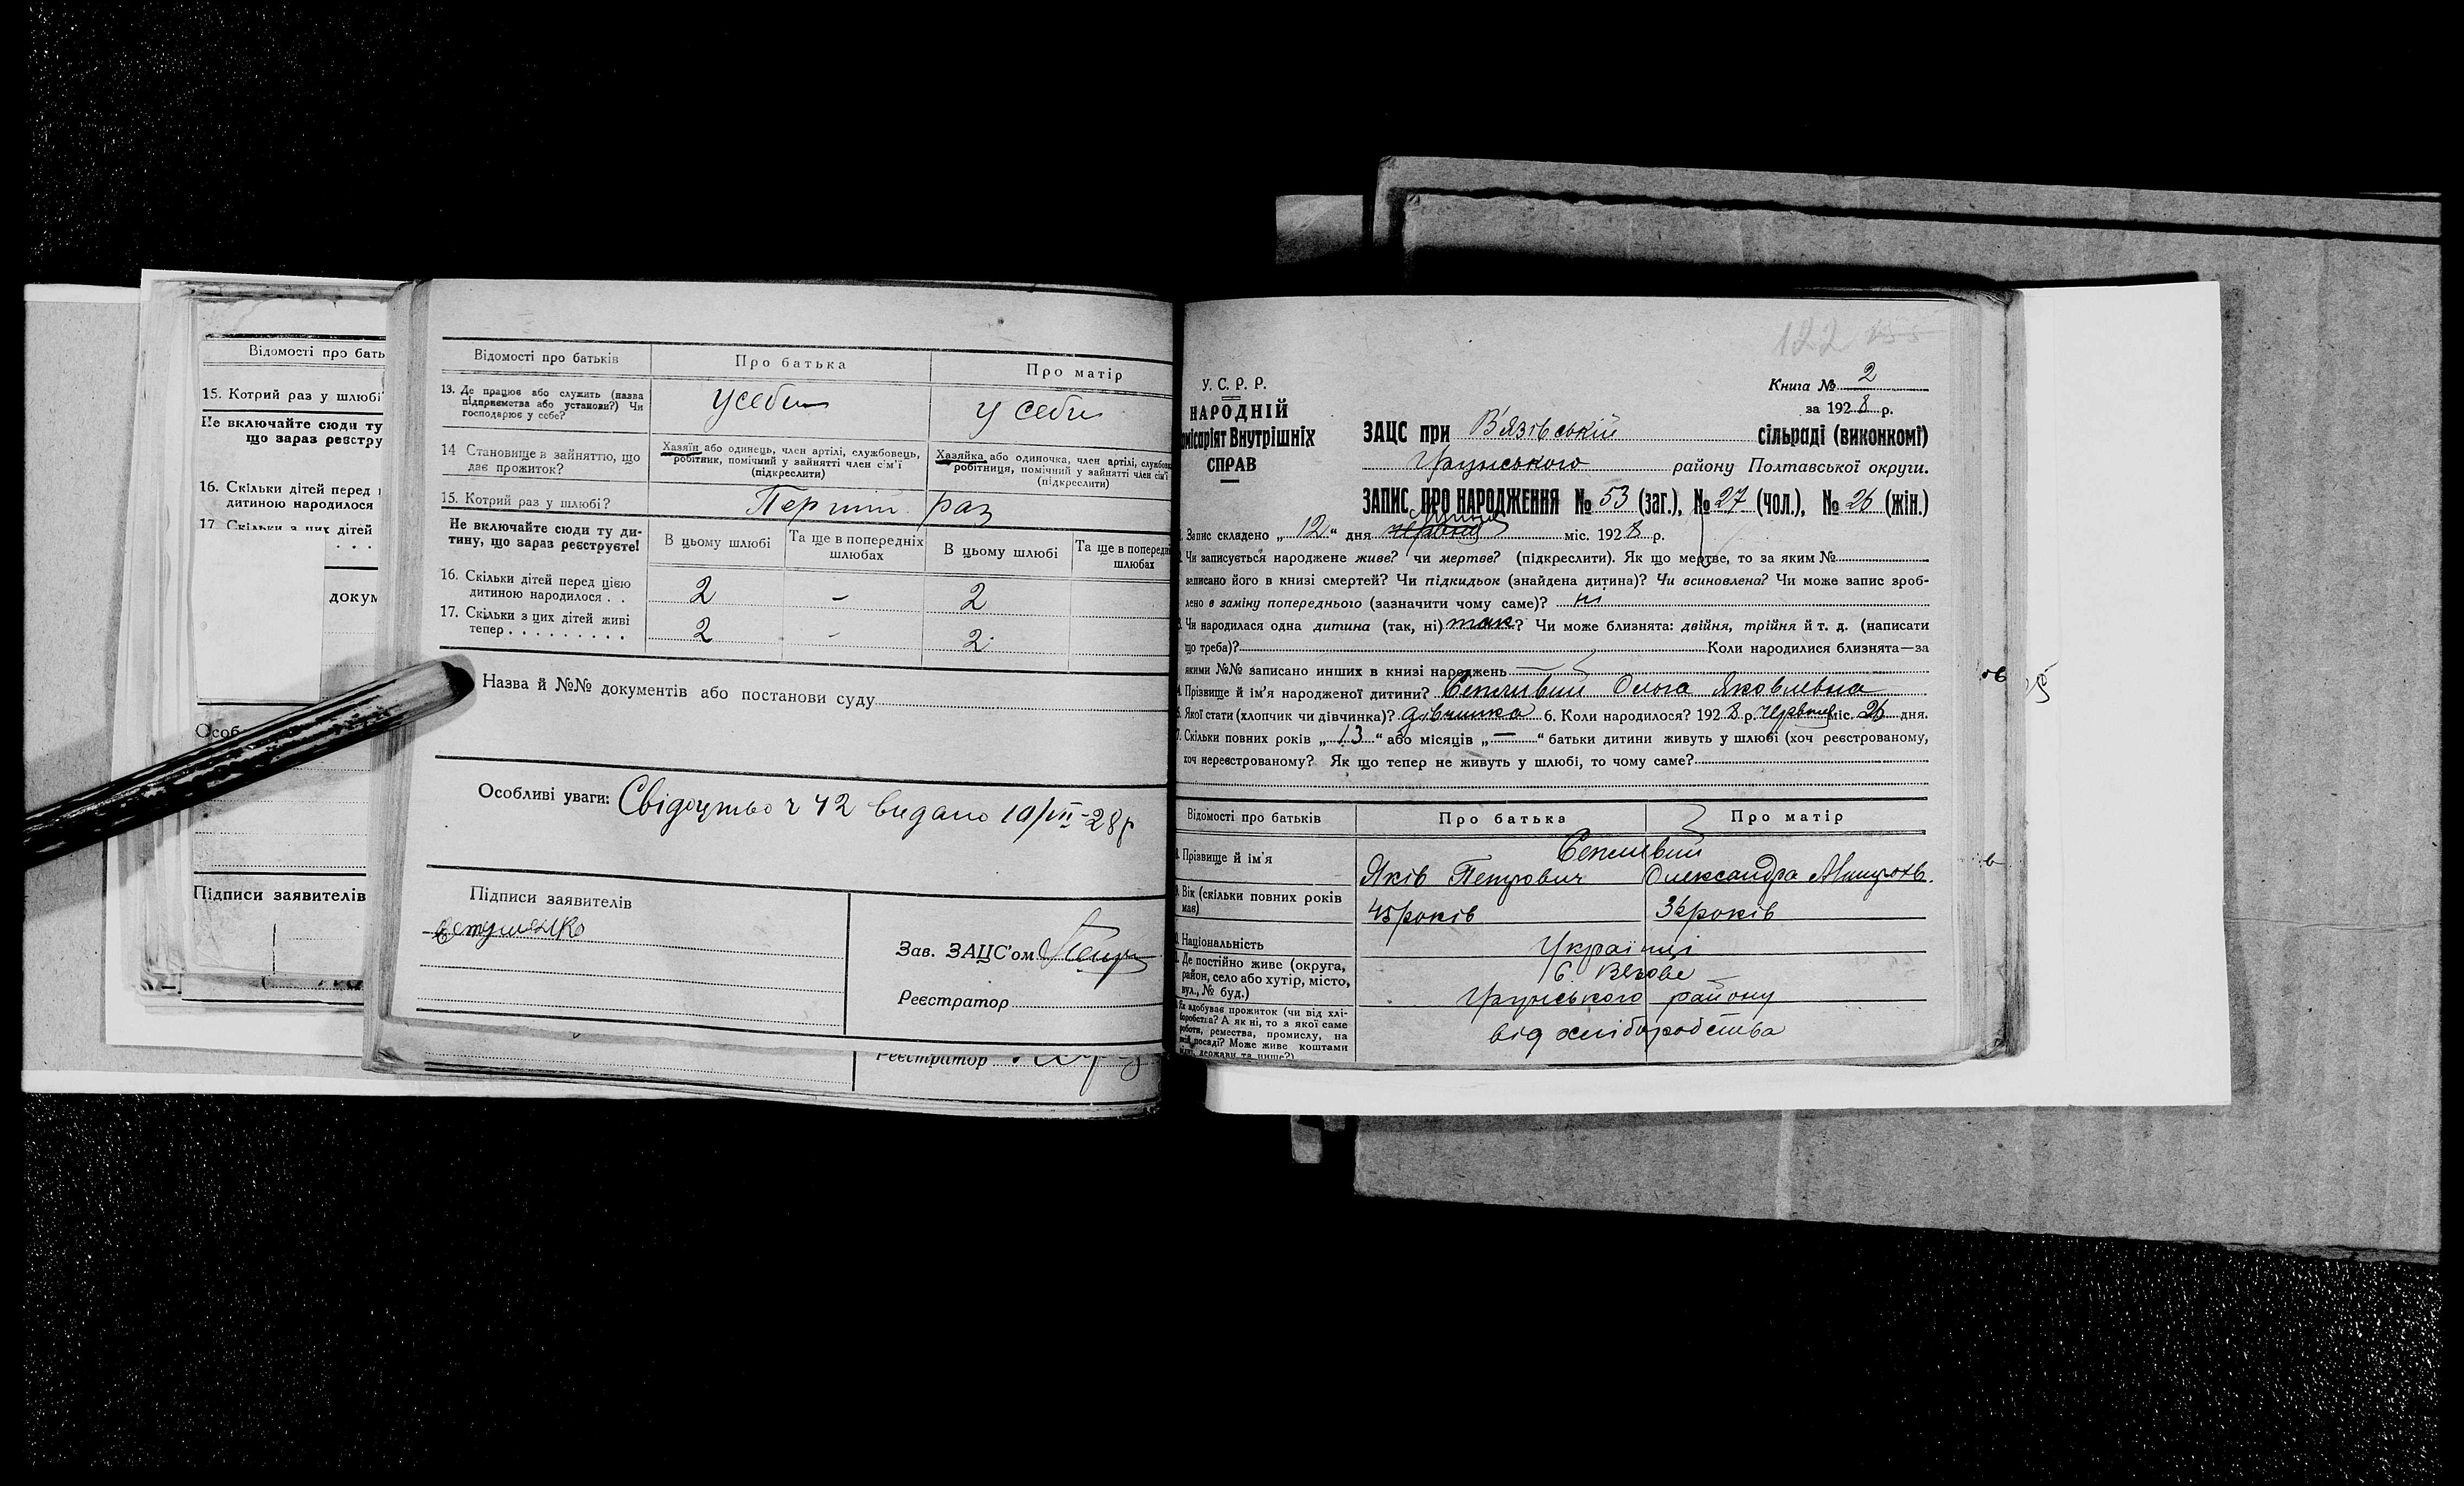 Відомості про бать
15. Котрий раз у шлюбі
Не включайте сюди ту
що зараз реєстру
16. Скільки дітей перед
дитиною народилося
17. Скільки з цих дітей
докум
Особ
Підписи заявителів
Відомості про батьків
Про батька
Про матір
13. Де працює або служить (назва
підприємства або установи?) Чи
господарює у себе?
у себи
у себи
14 Становище в зайняттю, що
дає прожиток?
Хазяїн або одинець, член артілі, службовець,
робітник, помічний у зайнятті член сім'ї
(підкреслити)
Хазяйка або одиночка, член артілі, службов
робітниця, помічний у зайнятті член сім'ї
(підкреслити)
15. Котрий раз у шлюбі?
Перший раз
Не включайте сюди ту ди-
тину, що зараз реєструєте!
В цьому шлюбі
Та ще в попередніх
шлюбах
В цьому шлюбі
Та ще в попередн
шлюбах
16. Скільки дітей перед цією
дитиною народилося . .
2 - 2
17. Скільки з цих дітей живі
тепер . . . . . . . . .
2 - 2
Назва й №№ документів або постанови суду
Особливі уваги: Свідоцтво ч 42 видано 19/VII-28р
Підписи заявителів
Зав. ЗАЦС'ом
Реєстратор
Реєстратор
122
У. С. Р. Р.
НАРОДНІЙ
місаріят Внутрішніх
СПРАВ
Книга № 2
за 1928 р.
ЗАЦС при В'язівській сільраді (виконкомі)
Грунського району Полтавської округи.
ЗАПИС ПРО НАРОДЖЕННЯ № 53 (заг.), № 27 (чол.), № 26 (жін.)
Запис складено „12" дня червня липня міс. 1928 р.
Чи записується народжене живе? чи мертве? (підкреслити). Як що мертве, то за яким №
записано його в книзі смертей? Чи підкидьок (знайдена дитина)? Чи всиновлена? Чи може запис зроб-
лено в заміну попереднього (зазначити чому саме)? ні
Чи народилася одна дитина (так, ні) так? Чи може близнята: двійня, трійня й т. д. (написати
що треба)? Коли народилися близнята—за
якими №№ записано инших в книзі народжень
Прізвище й ім'я народженої дитини? Ольга Яковлевна
Якої стати (хлопчик чи дівчинка)? дівчинка 6. Коли народилося? 1928 р. червня міс. 26 дня.
Скільки повних років „13" або місяців „—" батьки дитини живуть у шлюбі (хоч реєстрованому,
хоч нереєстрованому? Як що тепер не живуть у шлюбі, то чому саме?
Відомості про батьків
Про батька
Про матір
Прізвище й ім'я
Яків Петрович
Олександра
Вік (скільки повних років
має)
45 років
36 років
Національність
Українці
Де постійно живе (округа,
район, село або хутір, місто,
вул., № буд.)
с. Вязове
Грунського району
Як здобуває прожиток (чи від хлі-
боробства? А як ні, то з якої саме
роботи, ремества, промислу, на
якій посаді? Може живе коштами
держави та инше?)
від хліборобства